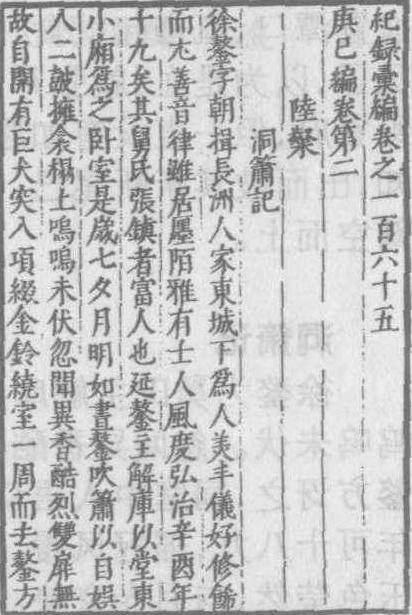 紀録彙編卷之一百六十五
庚巳編卷第二
陸粲
洞簫記
徐鏊字朝揖長洲人家東城下爲人美丰儀好修飾
而尤善音律雖居廛陌雅有士人風度弘治辛酉年
十九矣其舅氏張鎮者富人也延鏊主解庫以堂東
小廂爲之卧室是歲七夕月明如晝鏊吹簫以自娱
入二鼓擁衾榻上嗚嗚未伏忽聞異香酷烈雙扉無
故自開有巨犬突入項綴金鈴繞室一周而去鏊方